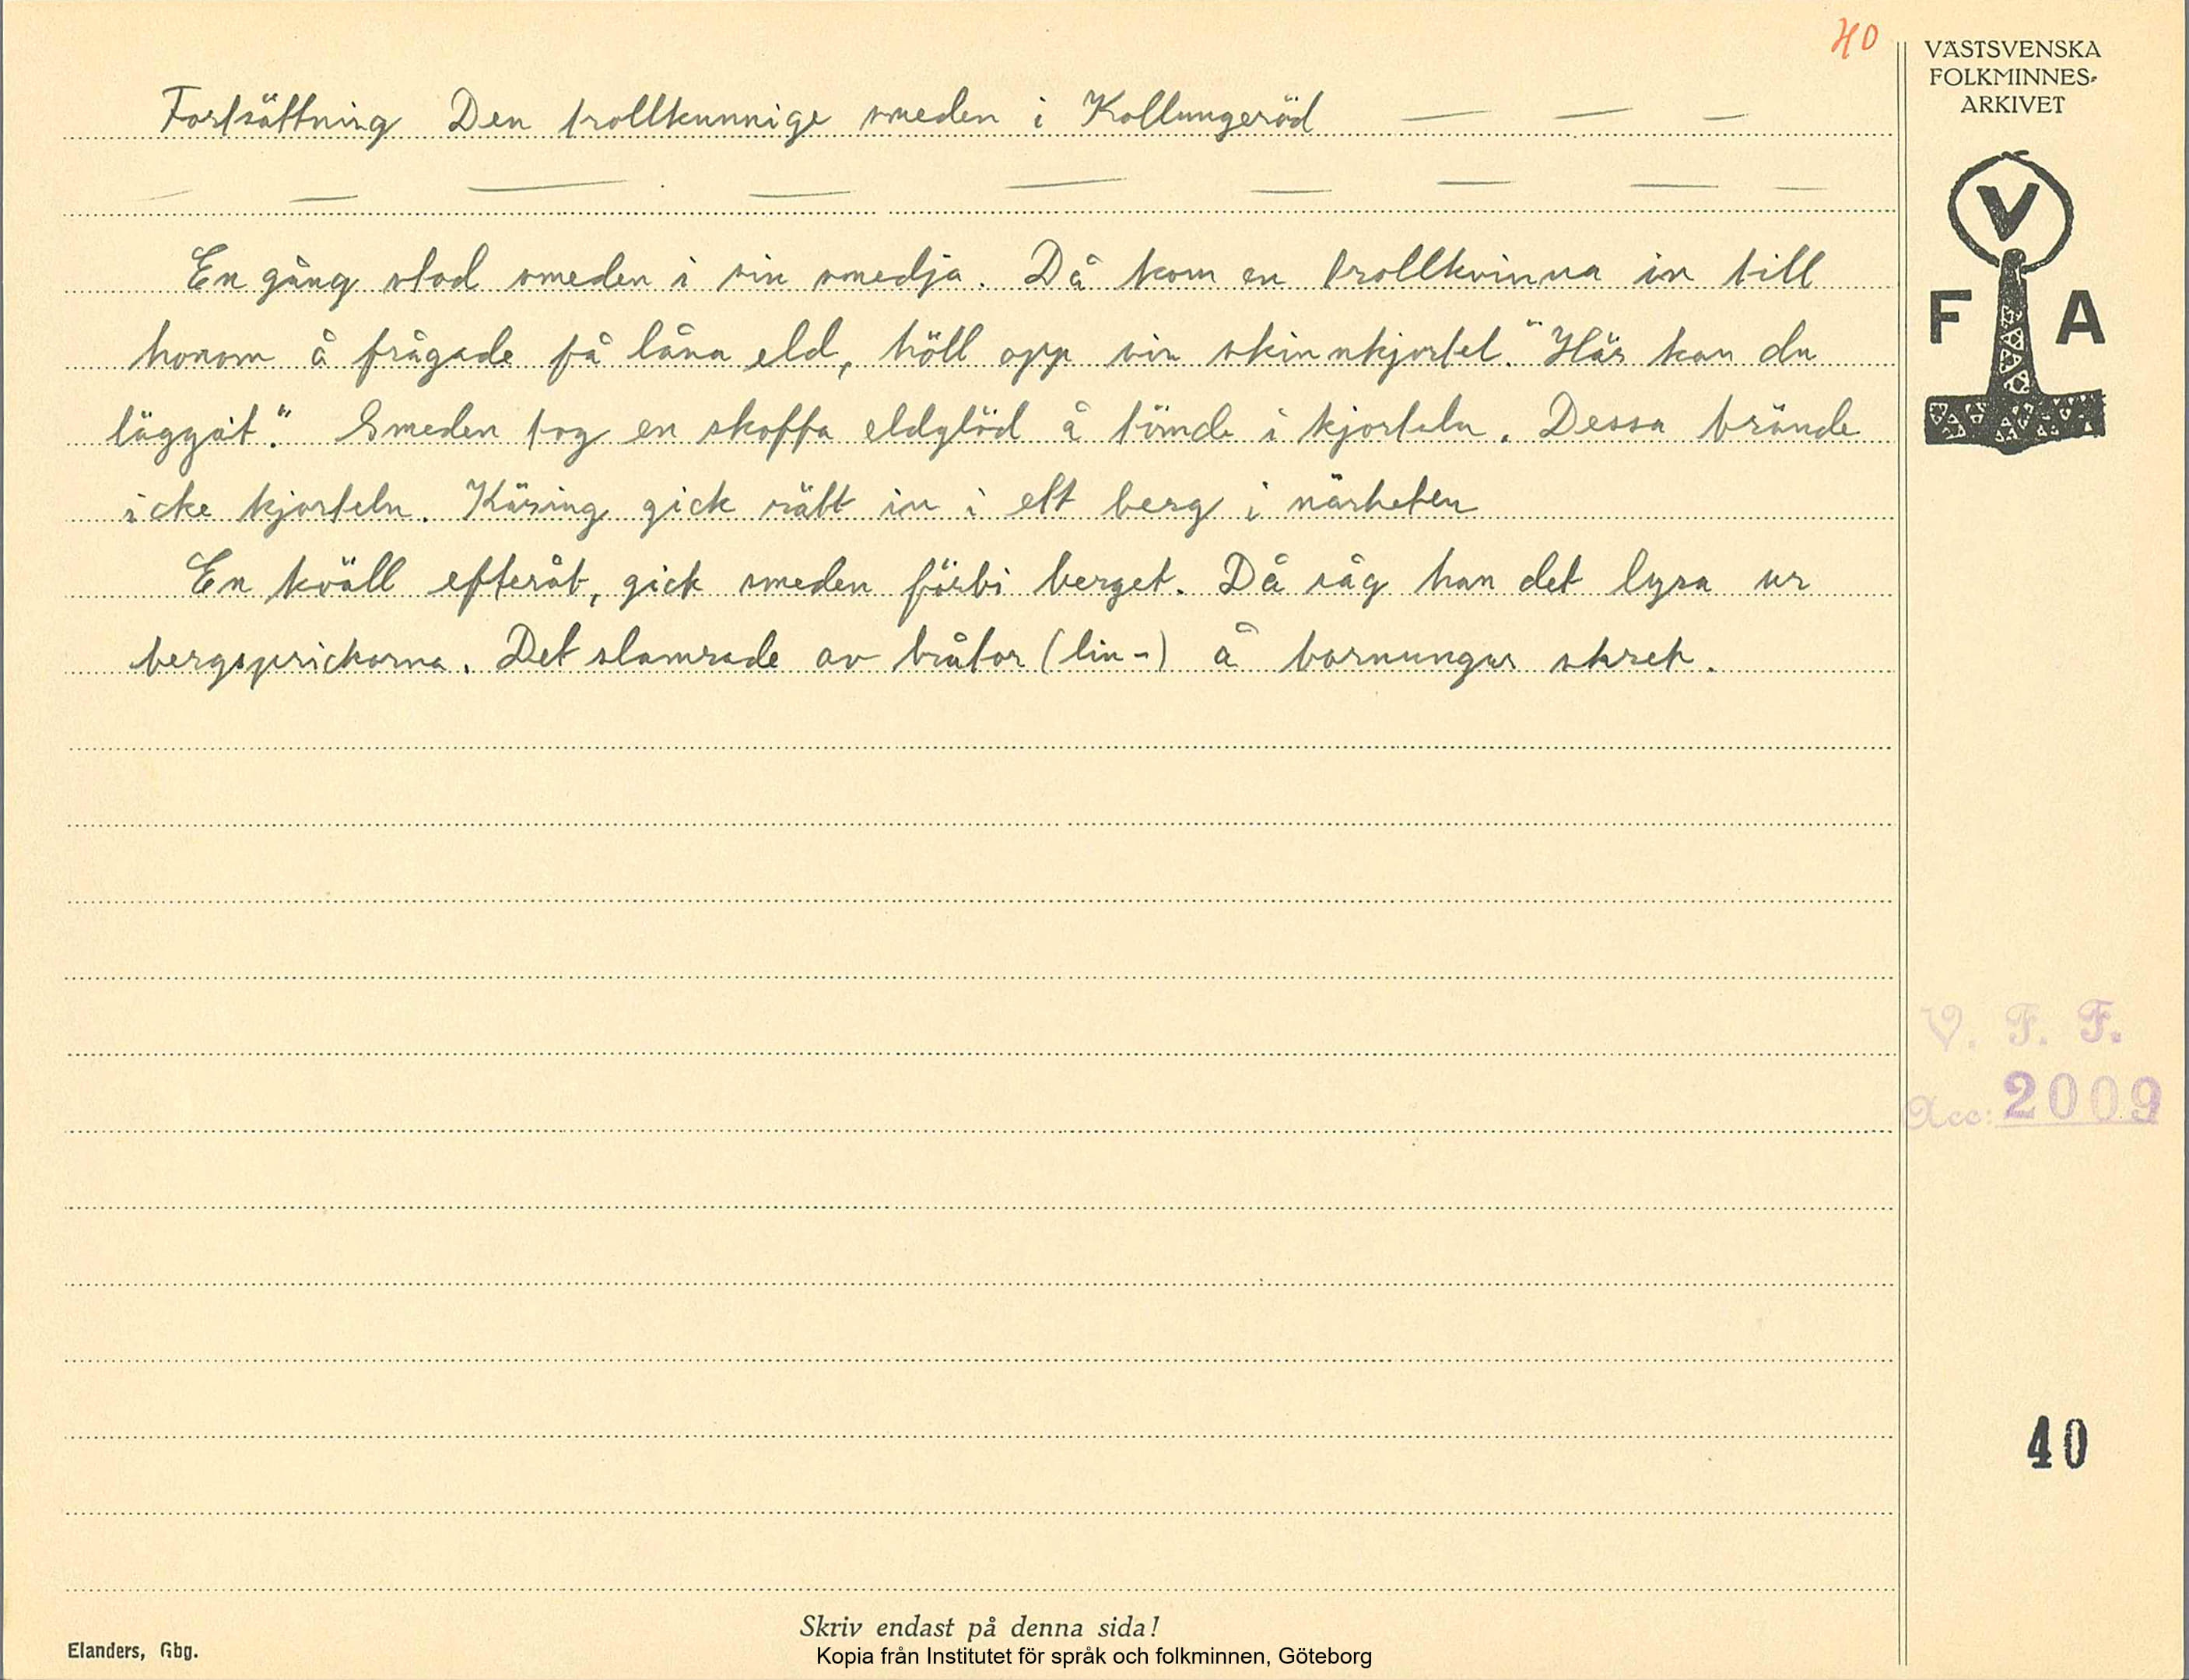 40
VÄSTSVENSKA
FOLKMINNES-
ARKIVET
V
F A
Fortsättning Den trollkunnige smeden i Kollungeröd — — —
— — — — — — — — —
En gång stod smeden i sin smedja. Då kom en trollkvinna in till
honom å frågade få låna eld, höll opp sin skinnkjortel. "Här kan du
läggat". Smeden tog en skoffa eldglöd å tömde i kjorteln. Dessa brände
icke kjorteln. Käring gick rätt in i ett berg i närheten
En kväll efteråt, gick smeden förbi berget. Då såg han det lysa ur
bergsprickorna. Det slamrade av bråtor (lin-) å barnungar skrek.
V. F. F.
Acc: 2009
40
Skriv endast på denna sida!
Elanders, Gbg.
Kopia från Institutet för språk och folkminnen, Göteborg